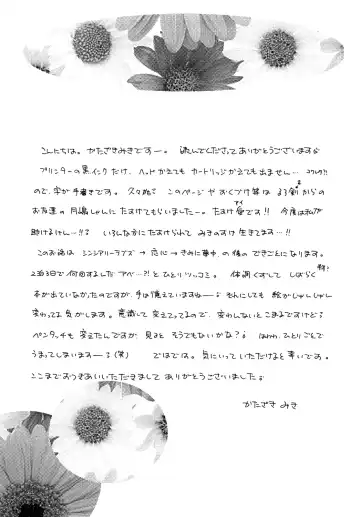 こんにちは。かたざきみきですー。読んでくださってありがとうございます♪
プリンターの黒インクだけ、ヘッドかえても カートリッジかえても出ません…
ので、字が手書きです。久々だ♪ このページや おくづけ等は まる剣からの
お友達の 月嶋しゃんに たすけてもらいましたー。たすけ愛です!! 今度は私が
助けるにんー!! いろんなかたに たすけられて みきのすけ 生きてます…!!
このお話は シンシアリーラブズ → 恋心 → きみに夢中 の後の できごとになります。
2泊3日で 何回するんだ アベー?! と ひとりツッコミ。体調くずして しばらく
本が出ていなかったのですが、手は覚えていますねー。それにしても 絵がしゅんしゅん
変わってて 負かします。意識して 変えてってるので、変わんないと こまるますけど
ペンタッチも 変えたんですが、見ると そうでもないかな? ひとりごとで
うまってしまいますー(笑) ではでは。気にいっていただけると 幸いです。
ここまでおつきあいいただきまして ありがとうございました。
かたざき みき